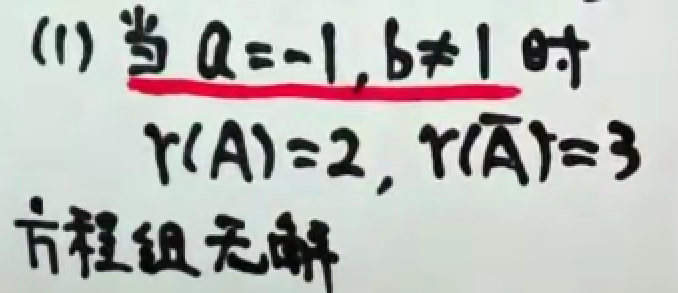 (1) 当 a=-1,b≠1 时
r(A)=2, r(Ā)=3
方程组无解